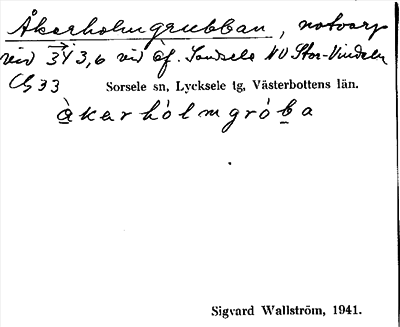 Åkerholmgrubban, notvarp
vid 3Y 3,6 vid öf. Sandsele NV Stor-Vindeln
C 33 Sorsele sn, Lycksele tg, Västerbottens län.
àkerhólmgróba
Sigvard Wallström, 1941.